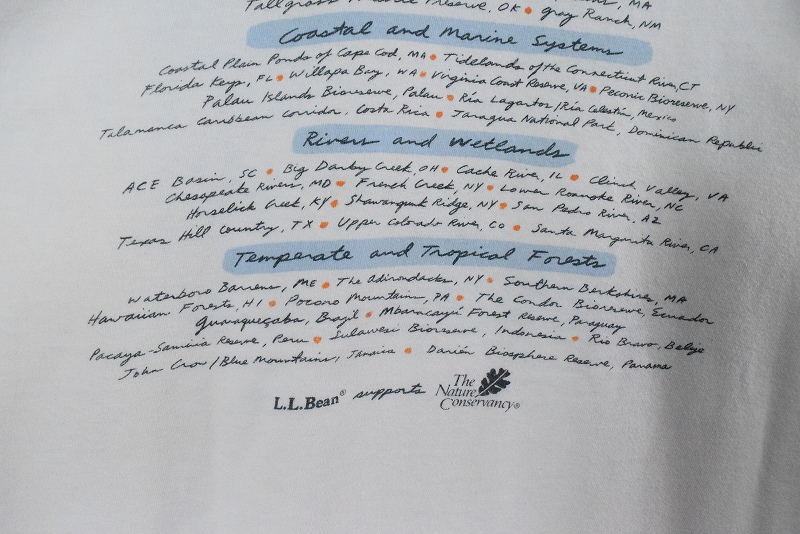 Tallgrass Prairie Preserve, OK • Gray Ranch, NM
Coastal and Marine Systems
Coastal Plain Ponds of Cape Cod, MA • Tidelands of the Connecticut River, CT
Florida Keys, FL • Willapa Bay, WA • Virginia Coast Reserve, VA • Peconic Bioreserve, NY
Palau Islands Bioreserve, Palau • Ria Lagartos/Ria Celestín, Mexico
Talamanca Caribbean Corridor, Costa Rica • Jaragua National Park, Dominican Republic
Rivers and Wetlands
ACE Basin, SC • Big Darby Creek, OH • Cache River, IL • Clinch Valley, VA
Chesapeake Rivers, MD • French Creek, NY • Lower Roanoke River, NC
Horselick Creek, KY • Shawangunk Ridge, NY • San Pedro River, AZ
Texas Hill Country, TX • Upper Colorado River, CO • Santa Margarita River, CA
Temperate and Tropical Forests
Waterboro Barrens, ME • The Adirondacks, NY • Southern Berkshires, MA
Hawaiian Forests, HI • Pocono Mountains, PA • The Condor Bioreserve, Ecuador
Guaraqueçaba, Brazil • Mbaracayú Forest Reserve, Paraguay
Pacaya-Samiria Reserve, Peru • Sulawesi Bioreserve, Indonesia • Rio Bravo, Belize
John Crow/Blue Mountains, Jamaica • Darién Biosphere Reserve, Panama
L.L.Bean® supports The Nature Conservancy®